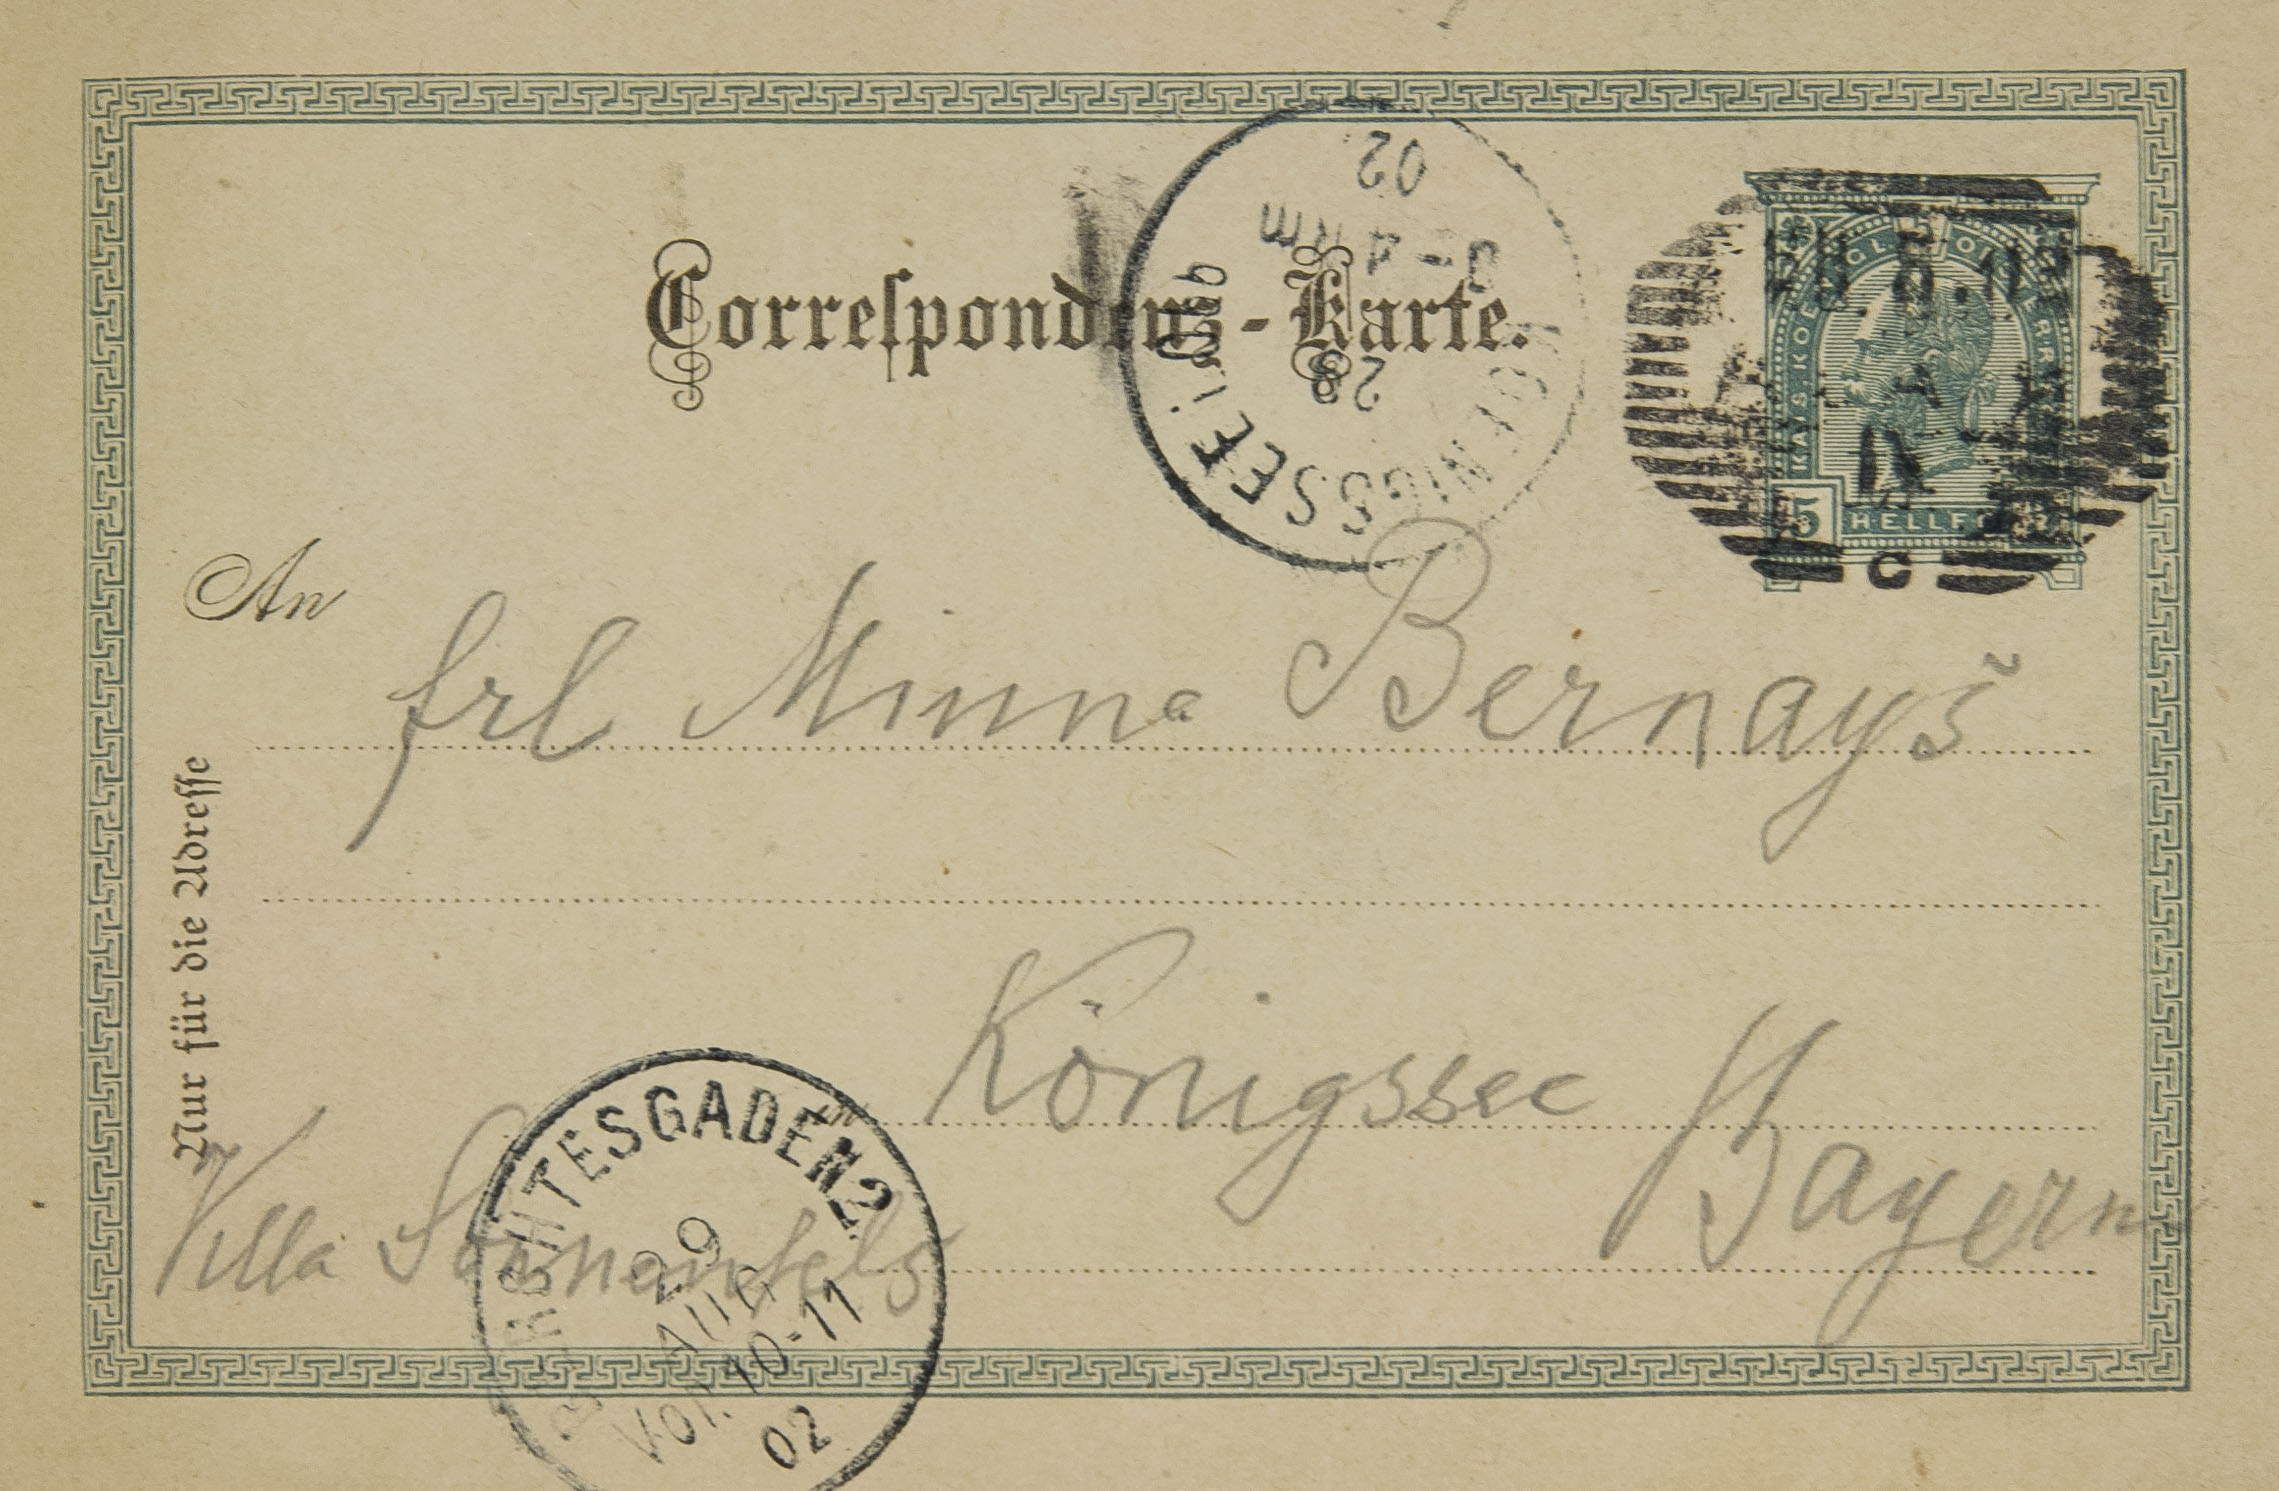 Correspondenz-Karte.
KAYS. KOENIGL. OESTERR.
5 HELLER
C
02
3-4 Nm
28
KOENIGSSEE
An
Frl Minna Bernays
Nur für die Adresse
Königssee
Bayern
Villa Sonnenfels
BERCHTESGADEN 2
29
AUG
Vor. 10-11
02